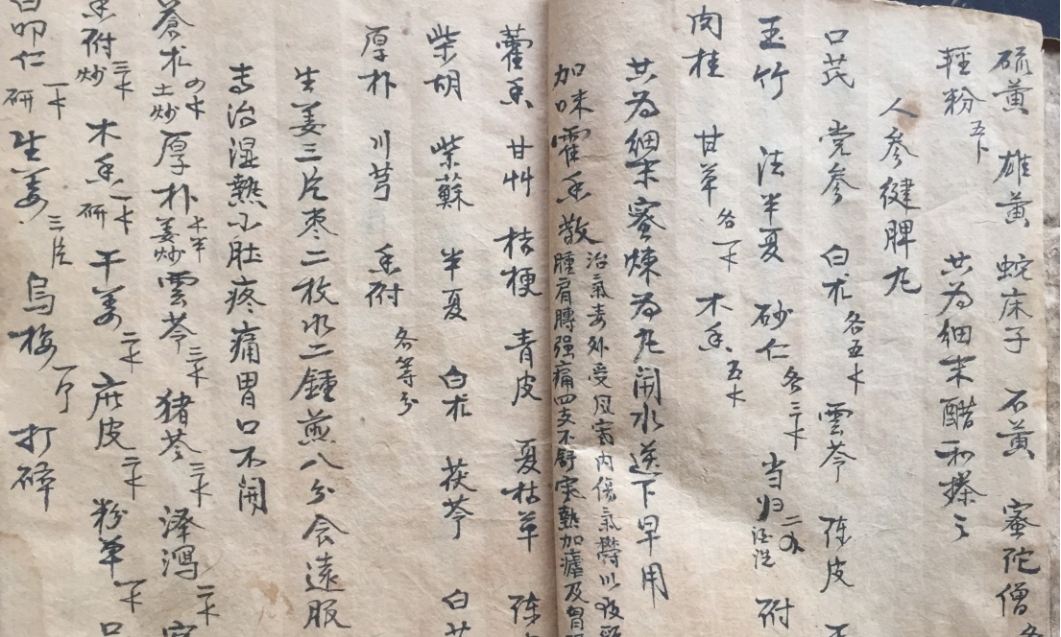 硫黄 雄黄 蛇床子 石黄 蜜陀僧
輕粉 共为细末醋和搽之
人參健脾丸
口芪 党參 白朮各五卞 雲苓 陈皮
玉竹 法半夏 砂仁各三卞 当归 附
肉桂 甘草各一卞 木香五卞
共为细末蜜煉为丸開水送下早用
加味霍香散
治氣毒外受风寒内伤氣欝以致
腫肩膊强痛四支不舒寒熱加瘧及胃
藿香 甘艸 桔梗 青皮 夏枯草 陈
柴胡 柴蘇 半夏 白朮 茯苓 白
厚朴 川芎 香附各等分
生姜三片枣二枚水二鍾煎八分食遠服
专治湿熱小肚疼痛胃口不開
蒼朮土炒 厚朴姜炒 雲苓三卞 猪苓三卞 泽瀉二卞
香附炒三卞 木香研一卞 干姜二卞 庇皮二卞 粉草一卞
白叩仁研一卞 生姜三片 烏梅一个 打碎